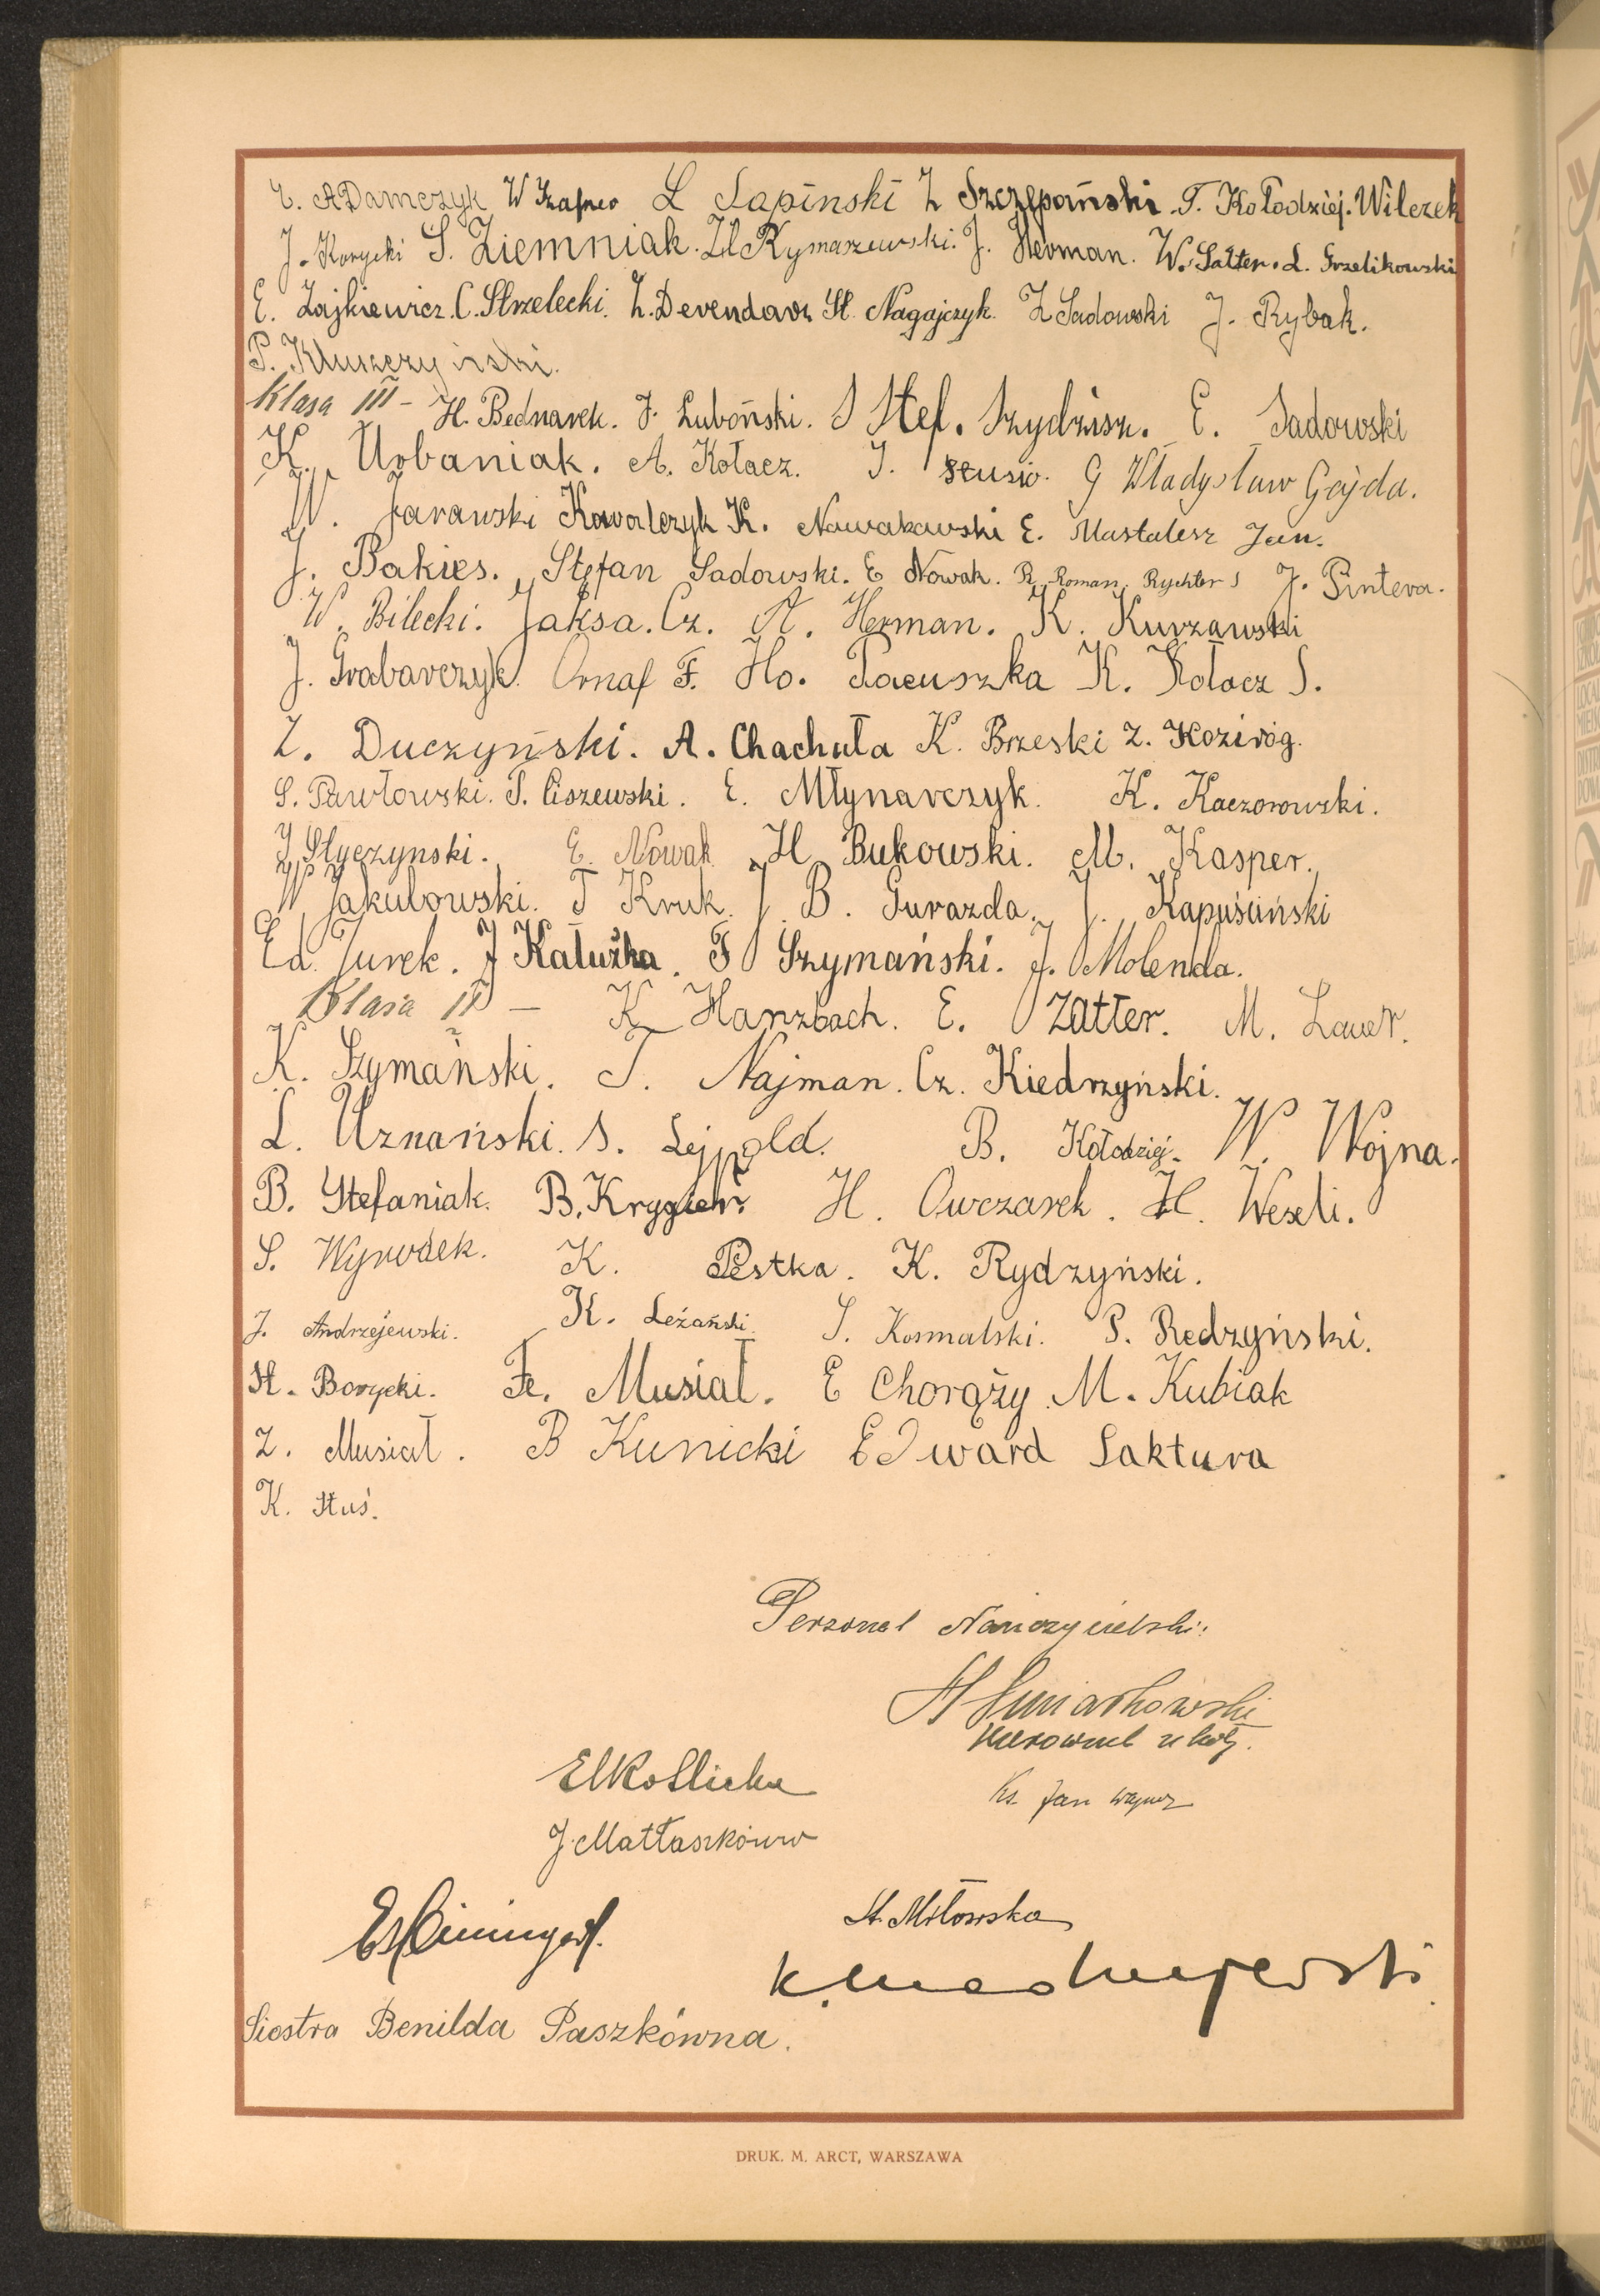 E. ADamczyk W Szafner L Lapinski Z Szczepański. T. Kołodziej. Wilczek
J. Korycki S. Ziemniak. Zd Rymaszewski. J. Herman. W. Satter. L. Grzelikowski
E. Zajkiewicz. C. Strzelecki. Z. Derendarz St. Nagajczyk. Z Sadowski J. Rybak.
P. Kluszczyński.
Klasa III – H. Bednarek. J. Luboński. S Stef. Szydzisz. E. Sadowski
K. Urbaniak. A. Kołacz. J. Stusio. G Władysław Gajda.
W. Jarawski Kowalczyk K. Nowakowski E. Mastalerz Jan.
J. Bakies. Stefan Sadowski. E Nowak. R. Roman. Rychter S J. Pintera.
W. Bilecki. Jaksa. Cz. A. Herman. K. Kurzawski
J. Grabarczyk. Ornaf F. Ho. Pacuszka K. Kołacz S.
Z. Duczyński. A. Chachuła K. Brzeski Z. Koziróg.
S. Pawłowski. T. Ciszewski. E. Młynarczyk. K. Kaczorowski.
J Styczynski. E. Nowak H Bukowski. M. Kasper.
W Jakubowski. T Kruk. J. B. Gurazda. J. Kapuściński
Ed. Jurek. J Kałużka. F Szymański. J. Molenda.
Klasa II – K Hanzbach. E. Zatter. M. Lauer.
K. Szymański. T. Najman. Cz. Kiedrzyński.
L. Uznański. S. Lejpold. B. Kołodziej. W. Wojna.
B. Stefaniak. B. Krygier. H. Owczarek. H. Weseli.
S. Wyrwdek. K. Pestka. K. Rydzyński.
J. Andrzejewski. K. Leżański S. Kosmalski. P. Redzyński.
St. Borycki. Fe. Musiał. E Chorąży M. Kubiak
Z. Musiał. B Kunicki EDward Saktura
K. Stuś.
Personel Nauczycielski:
Kierownik szkoły.
Ks. Jan
J. Mattaszkówna
St. Miłowska
Siostra Benilda Paszkówna.
DRUK. M. ARCT, WARSZAWA